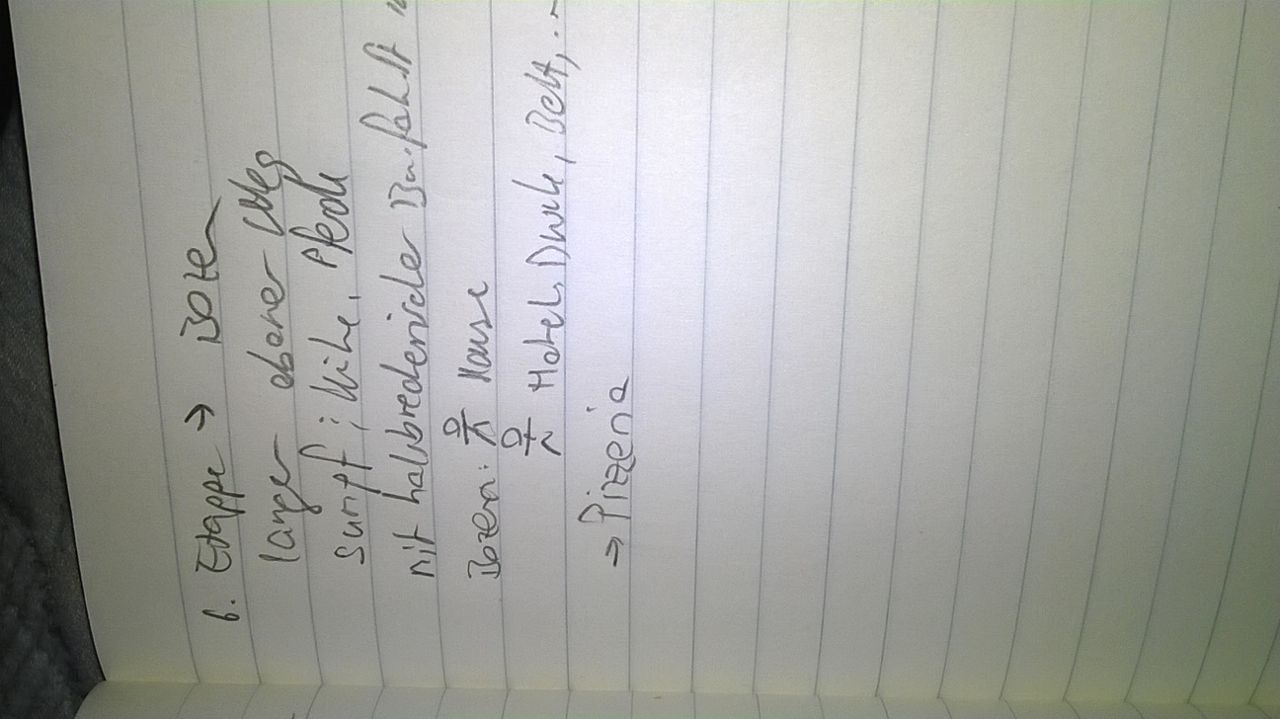 6. Etappe → Bozen
langer ebener Weg
Sumpf; Kühe, Pferde
mit halsbrecherischer Busfahrt
Bozen: Hause
Hotel, Dusche, Bett, ...
→ Pizzeria